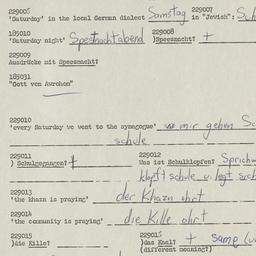 229006 229007
'Saturday' in the local German dialect Samstag in "Jewish": Sch
185010 229008
'Saturday night' Spestnachtabend )Speesnacht? +
229009
Ausdrücke mit Speesnacht?
185031
"Gott von Awrohom"
229010
'every Saturday we went to the synagogue' mir gehen Sc
schule
229011 229012
) Schulgegangen? + Was ist Schulklopfen? Sprichw
klopft schule u. legt sich
229013
'the khazn is praying' der Khazn ohrt
229014
'the community is praying' die Kille ohrt
229015 229016
)die Kille? )das Knel? + same (u
(different meaning?)